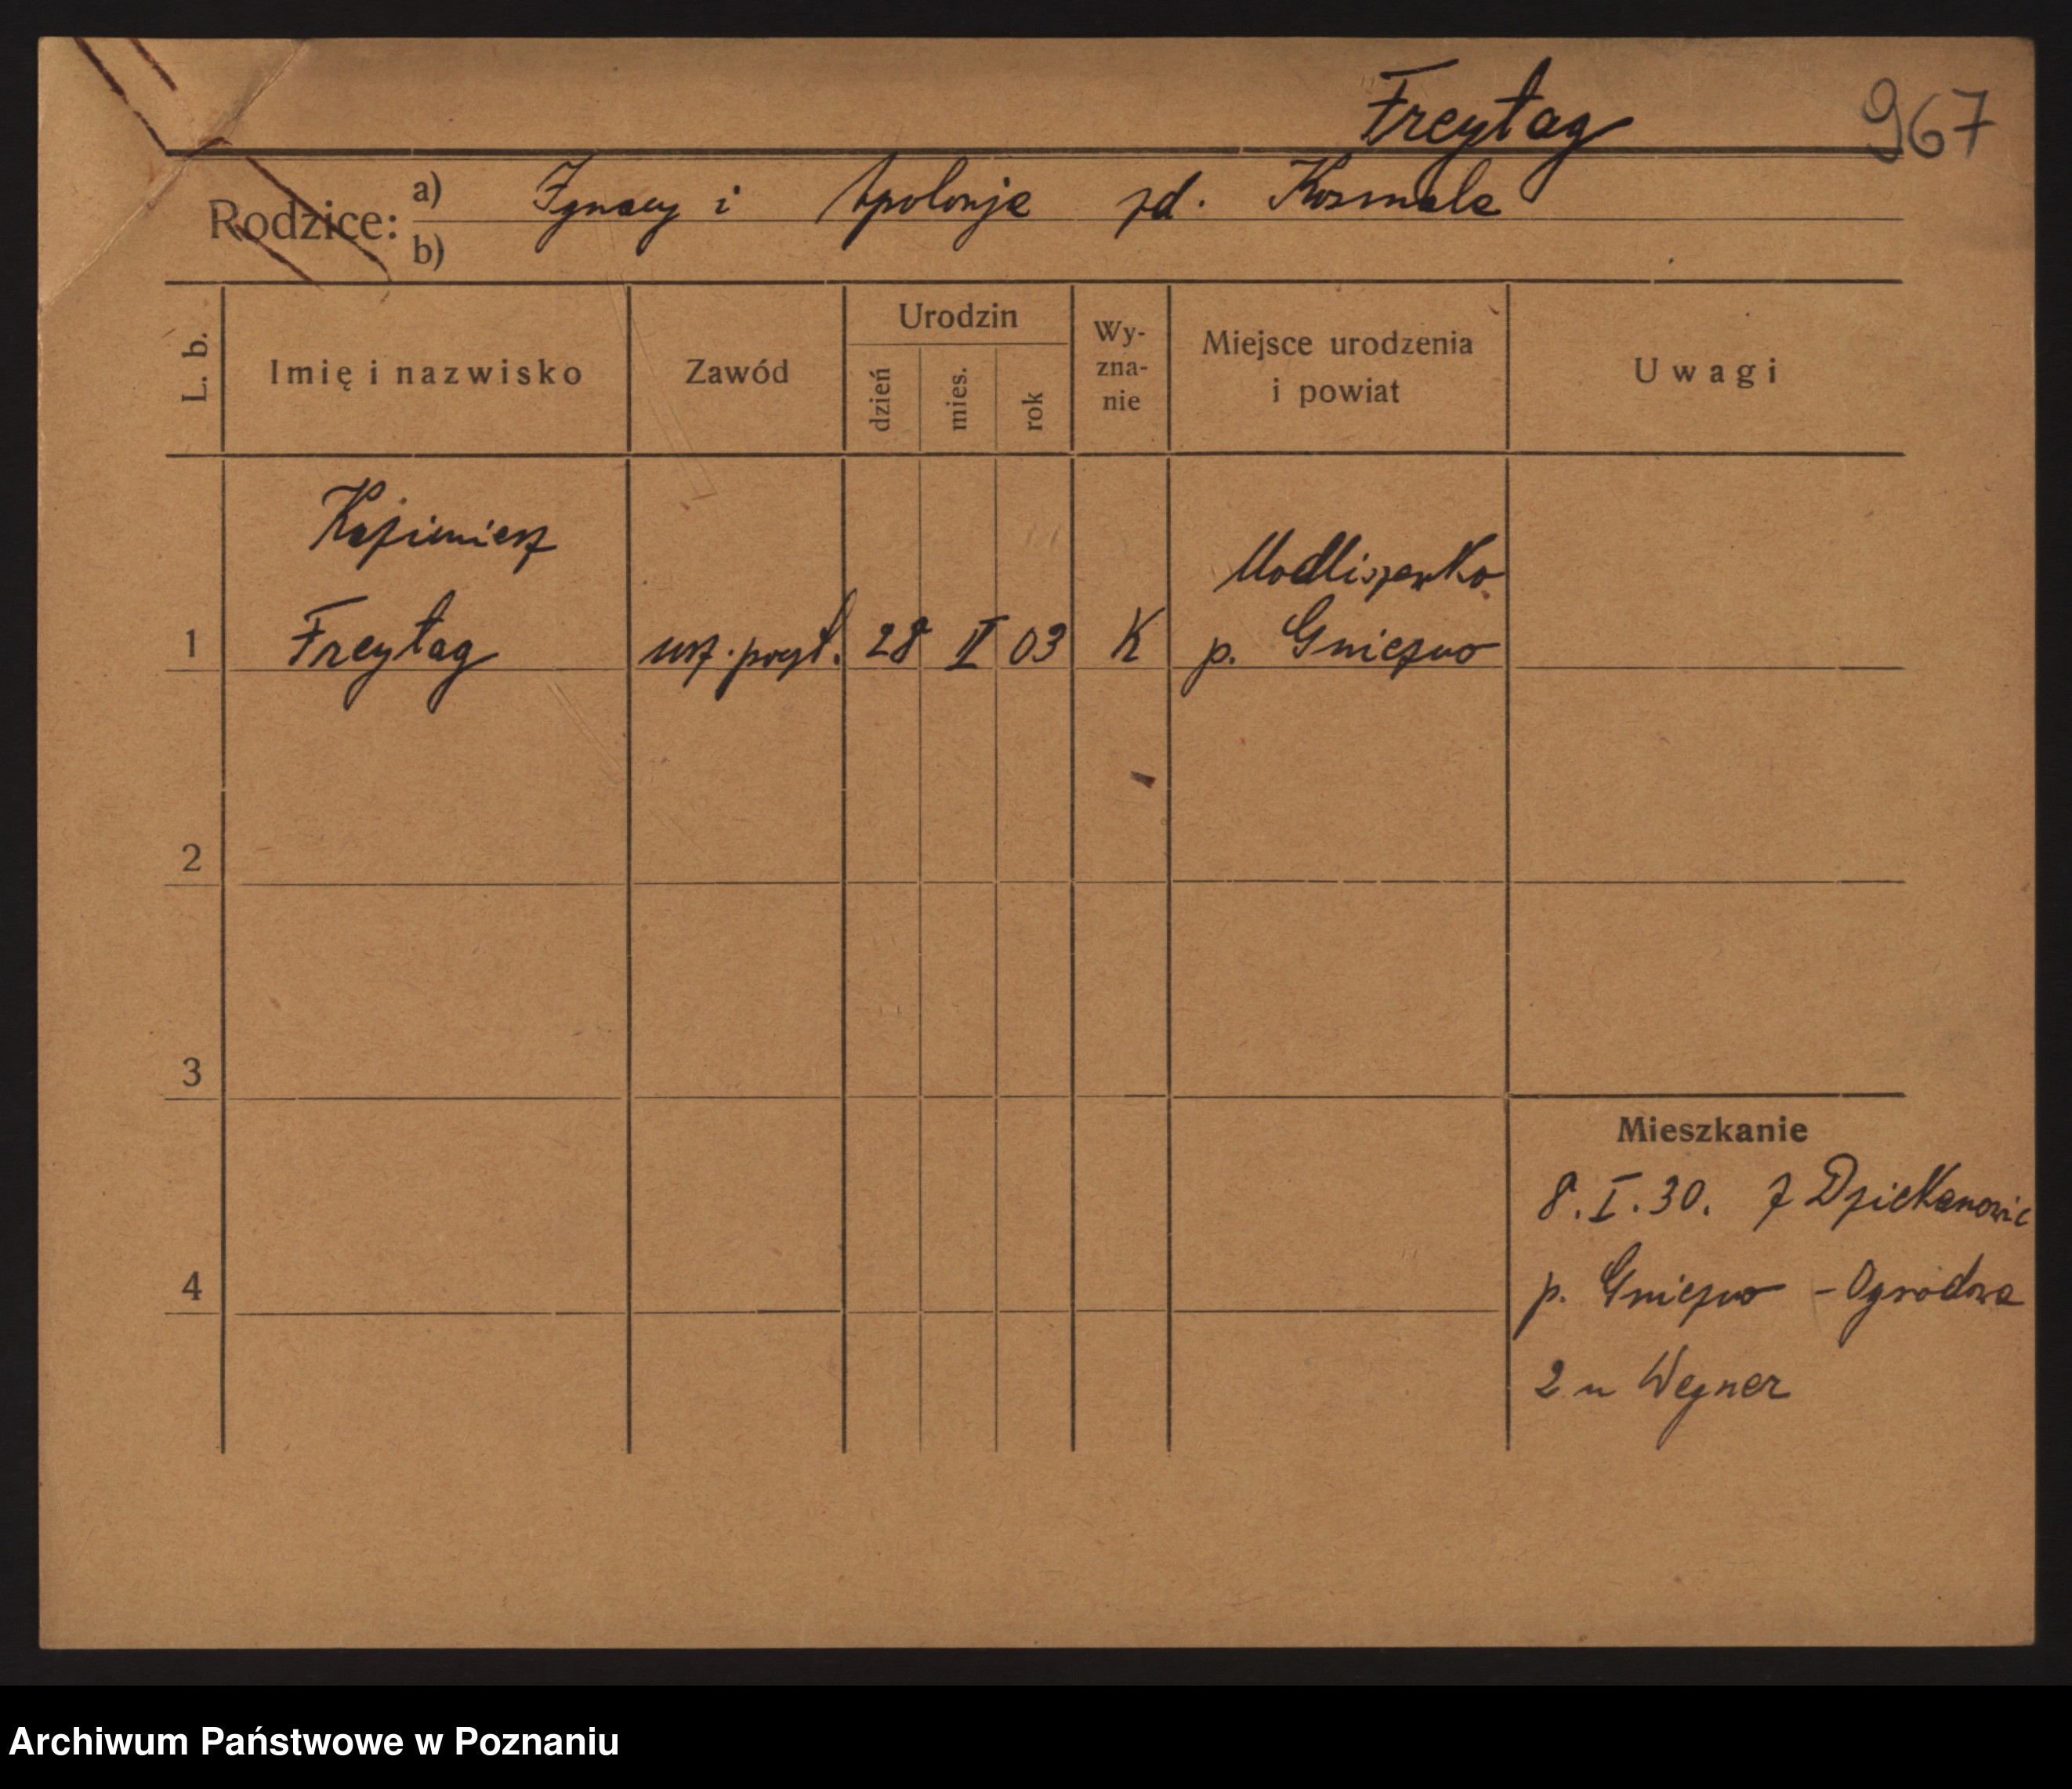 Freytag 967
Rodzice: a) Ignacy i Apolonja zd. Kosmala
b)
L. b. Imię i nazwisko Zawód Urodzin dzień mies. rok Wy-zna-nie Miejsce urodzenia i powiat Uwagi
Kazimierz
Modliszewko
1 Freytag urz. pryt. 28 II 03 K p. Gniezno
2
3
Mieszkanie
8.I.30. z Dziekanowic
4 p. Gniezno - Ogrodowa
2 u Wegner
Archiwum Państwowe w Poznaniu